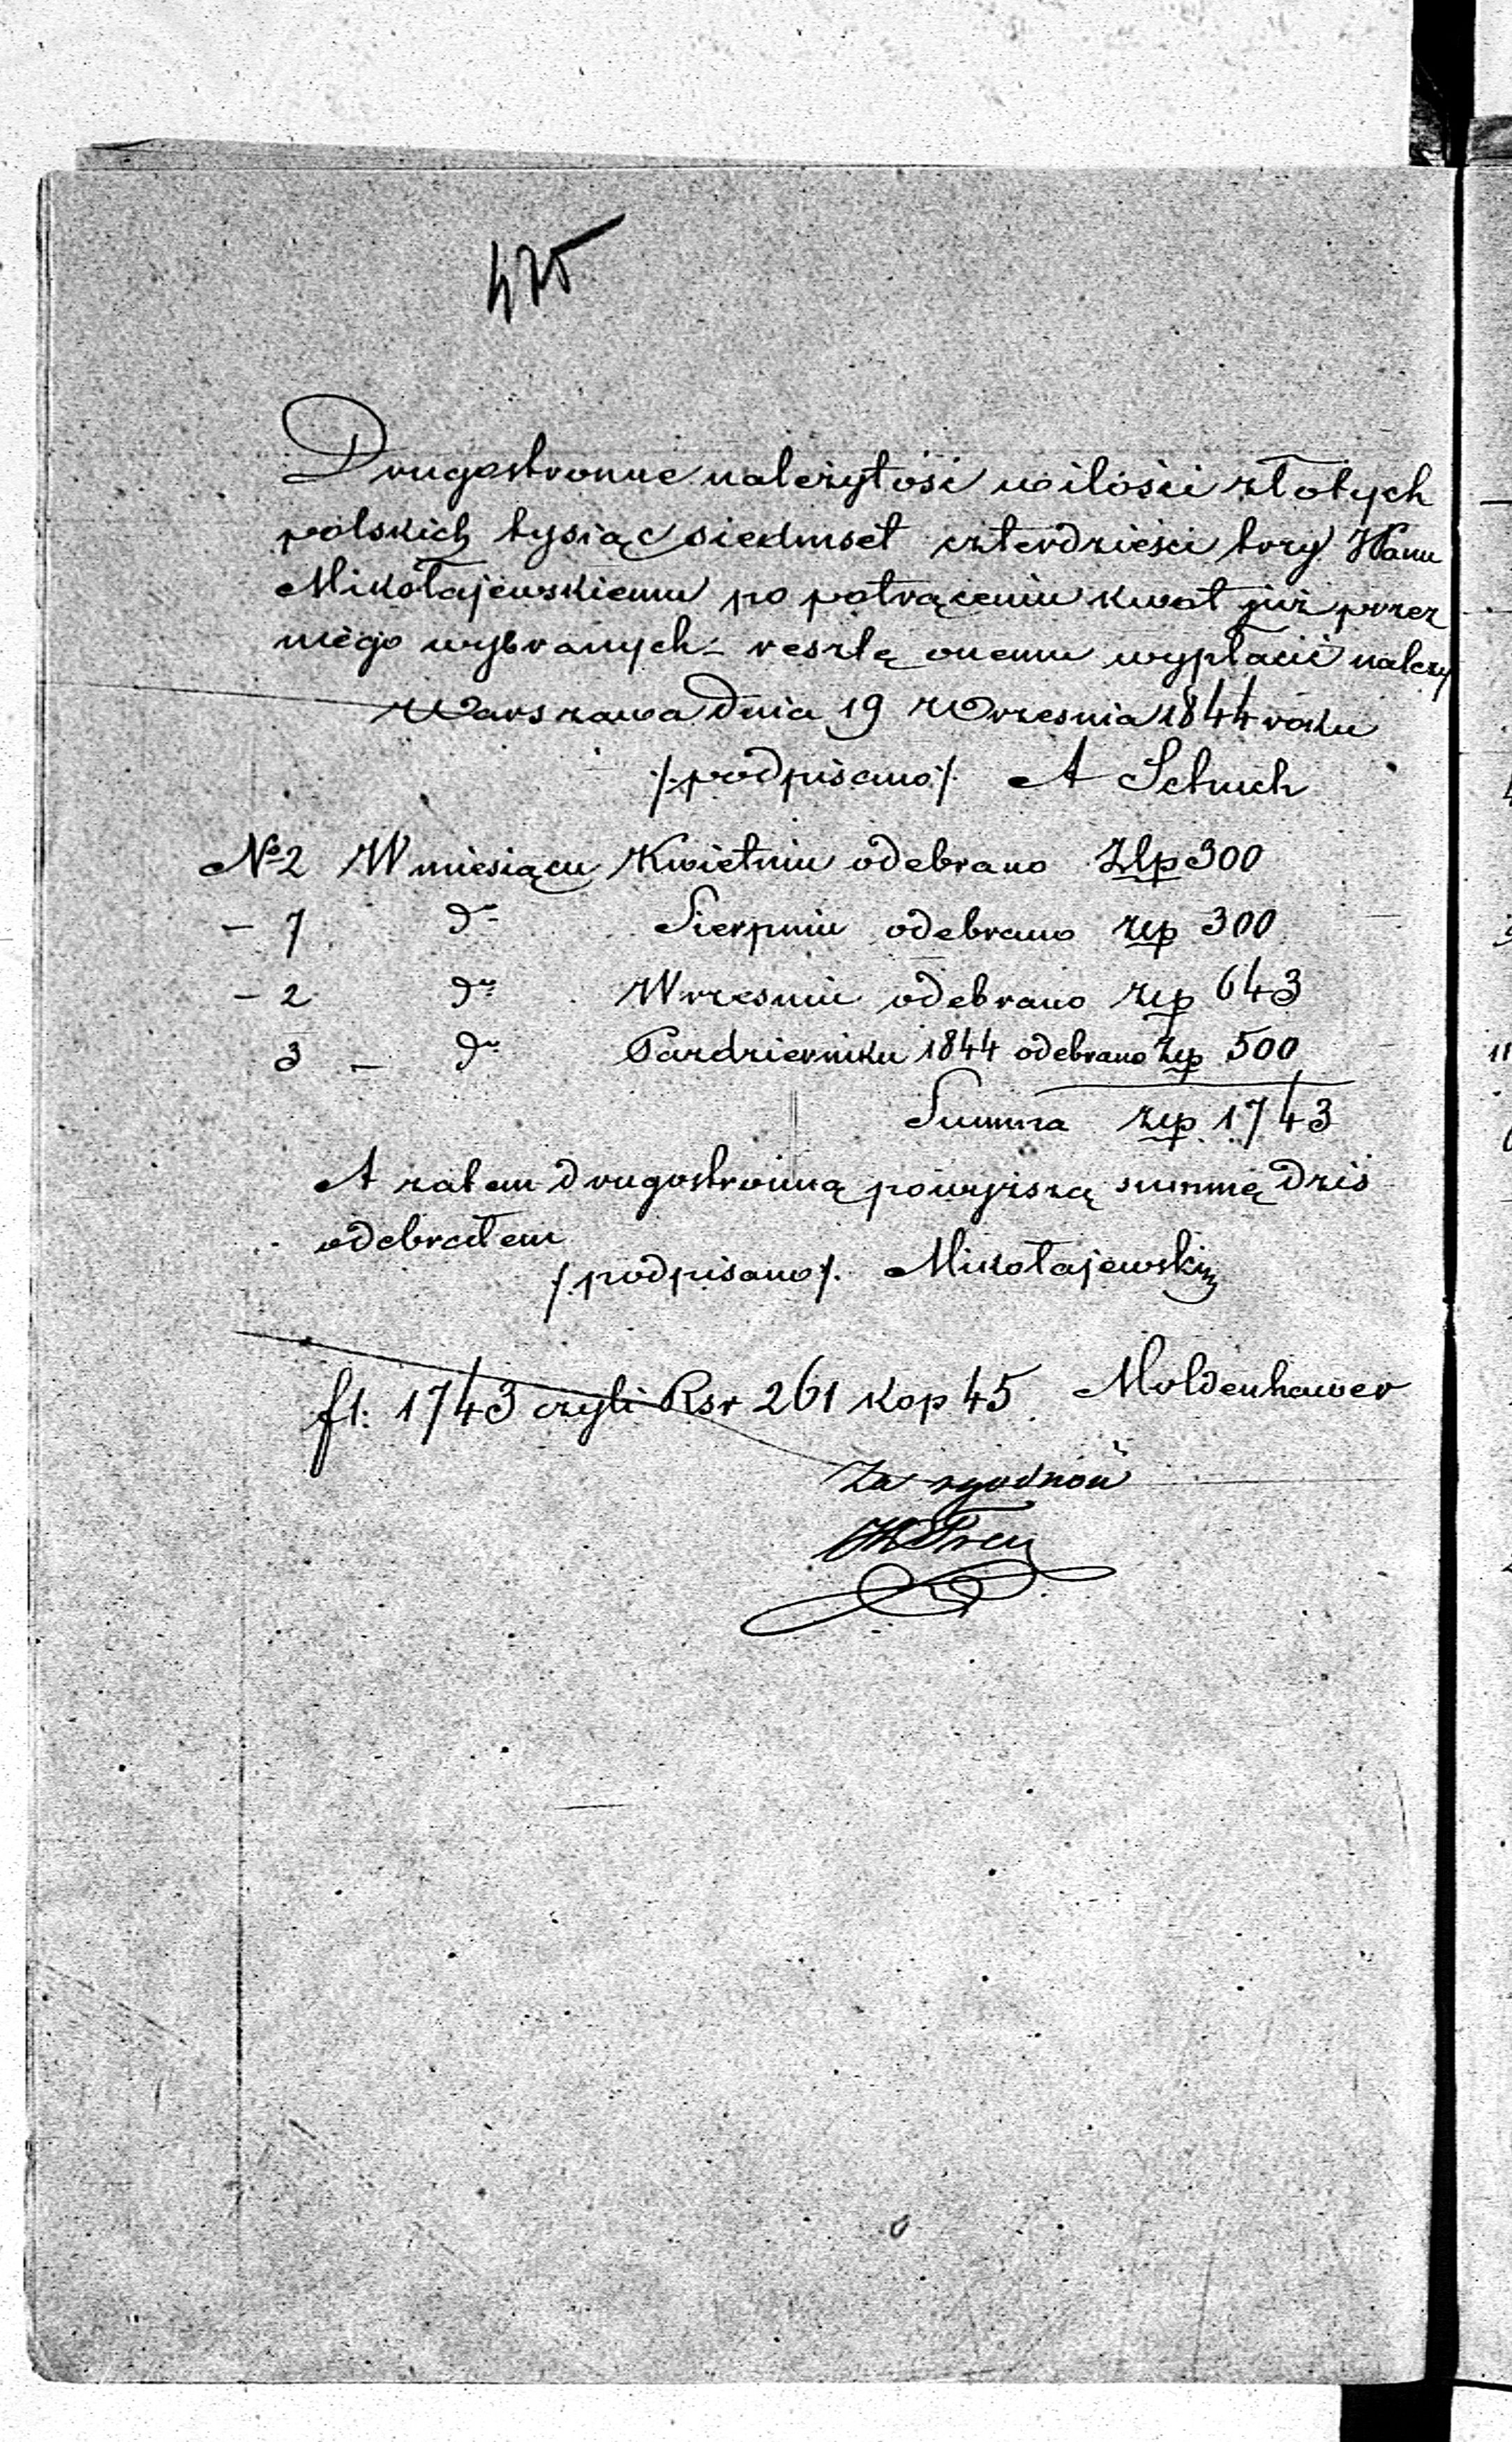 475
Drugostronne należytości w ilości złotych
polskich tysiąc siedmset czterdzieści trzy Panu
Mikołajewskiemu po potrąceniu kwot już przez
niego wybranych – resztę onemu wypłacić należy
Warszawa dnia 19 Września 1844 roku
/podpisano/ A Schuch
No 2 W miesiącu Kwietniu odebrano Złp 300
– 7 do Sierpniu odebrano złp 300
– 2 do Wrześniu odebrano złp 643
3 – do Pazdzierniku 1844 odebrano złp 500
Summa złp. 1743
A zatem drugostronną powyższą summę dziś
odebrałem
/podpisano/. Mikołajewski
fl: 1743 czyli Rsr 261 kop 45. Moldenhawer
Za zgodność